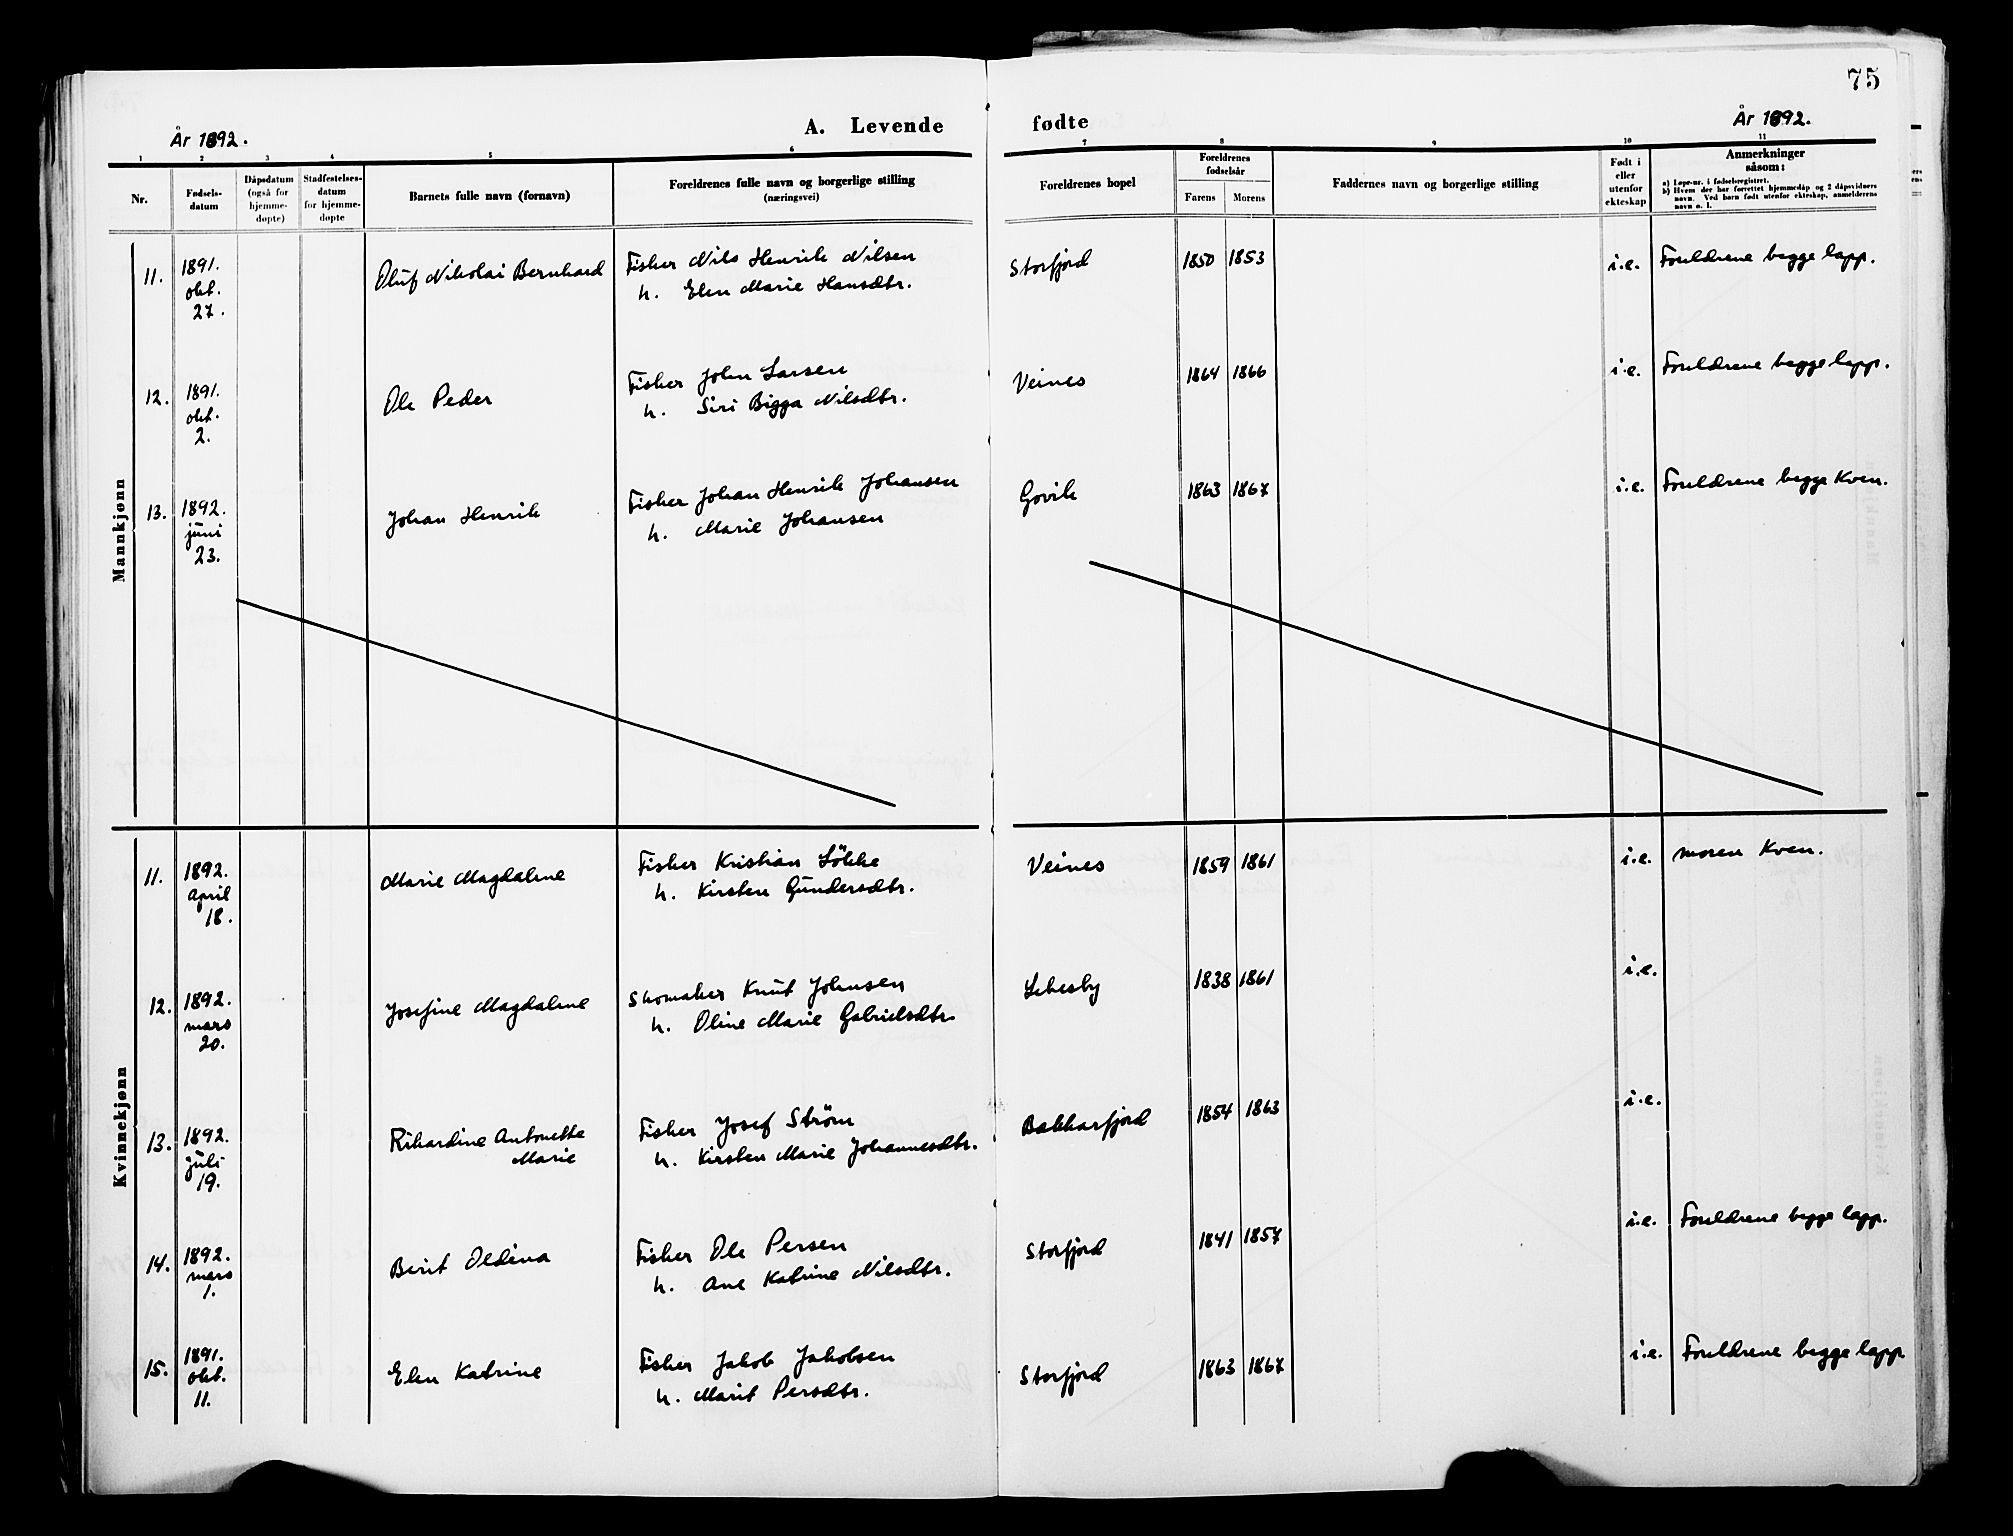 75
År 1892.
A. Levende fødte
År 1892.
1 2 3 4 5 6 7 8 9 10 11
Nr.
Fødsels-
datum
Dåpsdatum
(også for
hjemme-
døpte)
Stadfestelses-
datum
for hjemme-
døpte
Barnets fulle navn (fornavn)
Foreldrenes fulle navn og borgerlige stilling
(næringsvei)
Foreldrenes bopel
Foreldrenes
fødselsår
Farens Morens
Faddernes navn og borgerlige stilling
Født i
eller
utenfor
ekteskap
Anmerkninger
såsom:
a) Løpe-nr. i fødselsregistret.
b) Hvem der har forrettet hjemmedåp og 2 dåpsvidners
navn. Ved barn født utenfor ekteskap, anmelderens
navn o. l.
Mannkjønn
11. 1891. Oluf Nikolai Bernhard Fisker Nils Henrik Nilsen Storfjord 1850 1853 i.e. Foreldrene begge lapp.
okt. h. Elen Marie Hansdtr.
27.
12. 1891. Ole Peder Fisker John Larsen Veines 1864 1866 i.e. Foreldrene begge lapp.
okt. h. Siri Bigga Nilsdtr.
2.
13. 1892. Johan Henrik Fisker Johan Henrik Johansen Govik 1863 1867 i.e. Foreldrene begge Kven.
juni h. Marie Johansen
23.
Kvinnekjønn
11. 1892. Marie Magdalene Fisker Kristian Lökke Veines 1859 1861 i.e. moren Kven.
April h. Kirsten Gundersdtr.
18.
12. 1892. Josefine Magdalene Skomaker Knut Johnsen Lebesby 1838 1861 i.e.
mars h. Oline Marie Gabrielsdtr.
20.
13. 1892. Rikardine Antonette Fisker Josef Ström Bakkarfjord 1854 1863 i.e.
juli Marie h. Kirsten Marie Johannesdtr.
19.
14. 1892. Berit Oldina Fisker Ole Persen Storfjord 1841 1857 i.e. Foreldrene begge lapp.
mars h. Ane Katrine Nilsdtr.
1.
15. 1891. Elen Katrine Fisker Jakob Jakobsen Storfjord 1863 1867 i.e. Foreldrene begge lapp
okt. h. Marit Persdtr.
11.